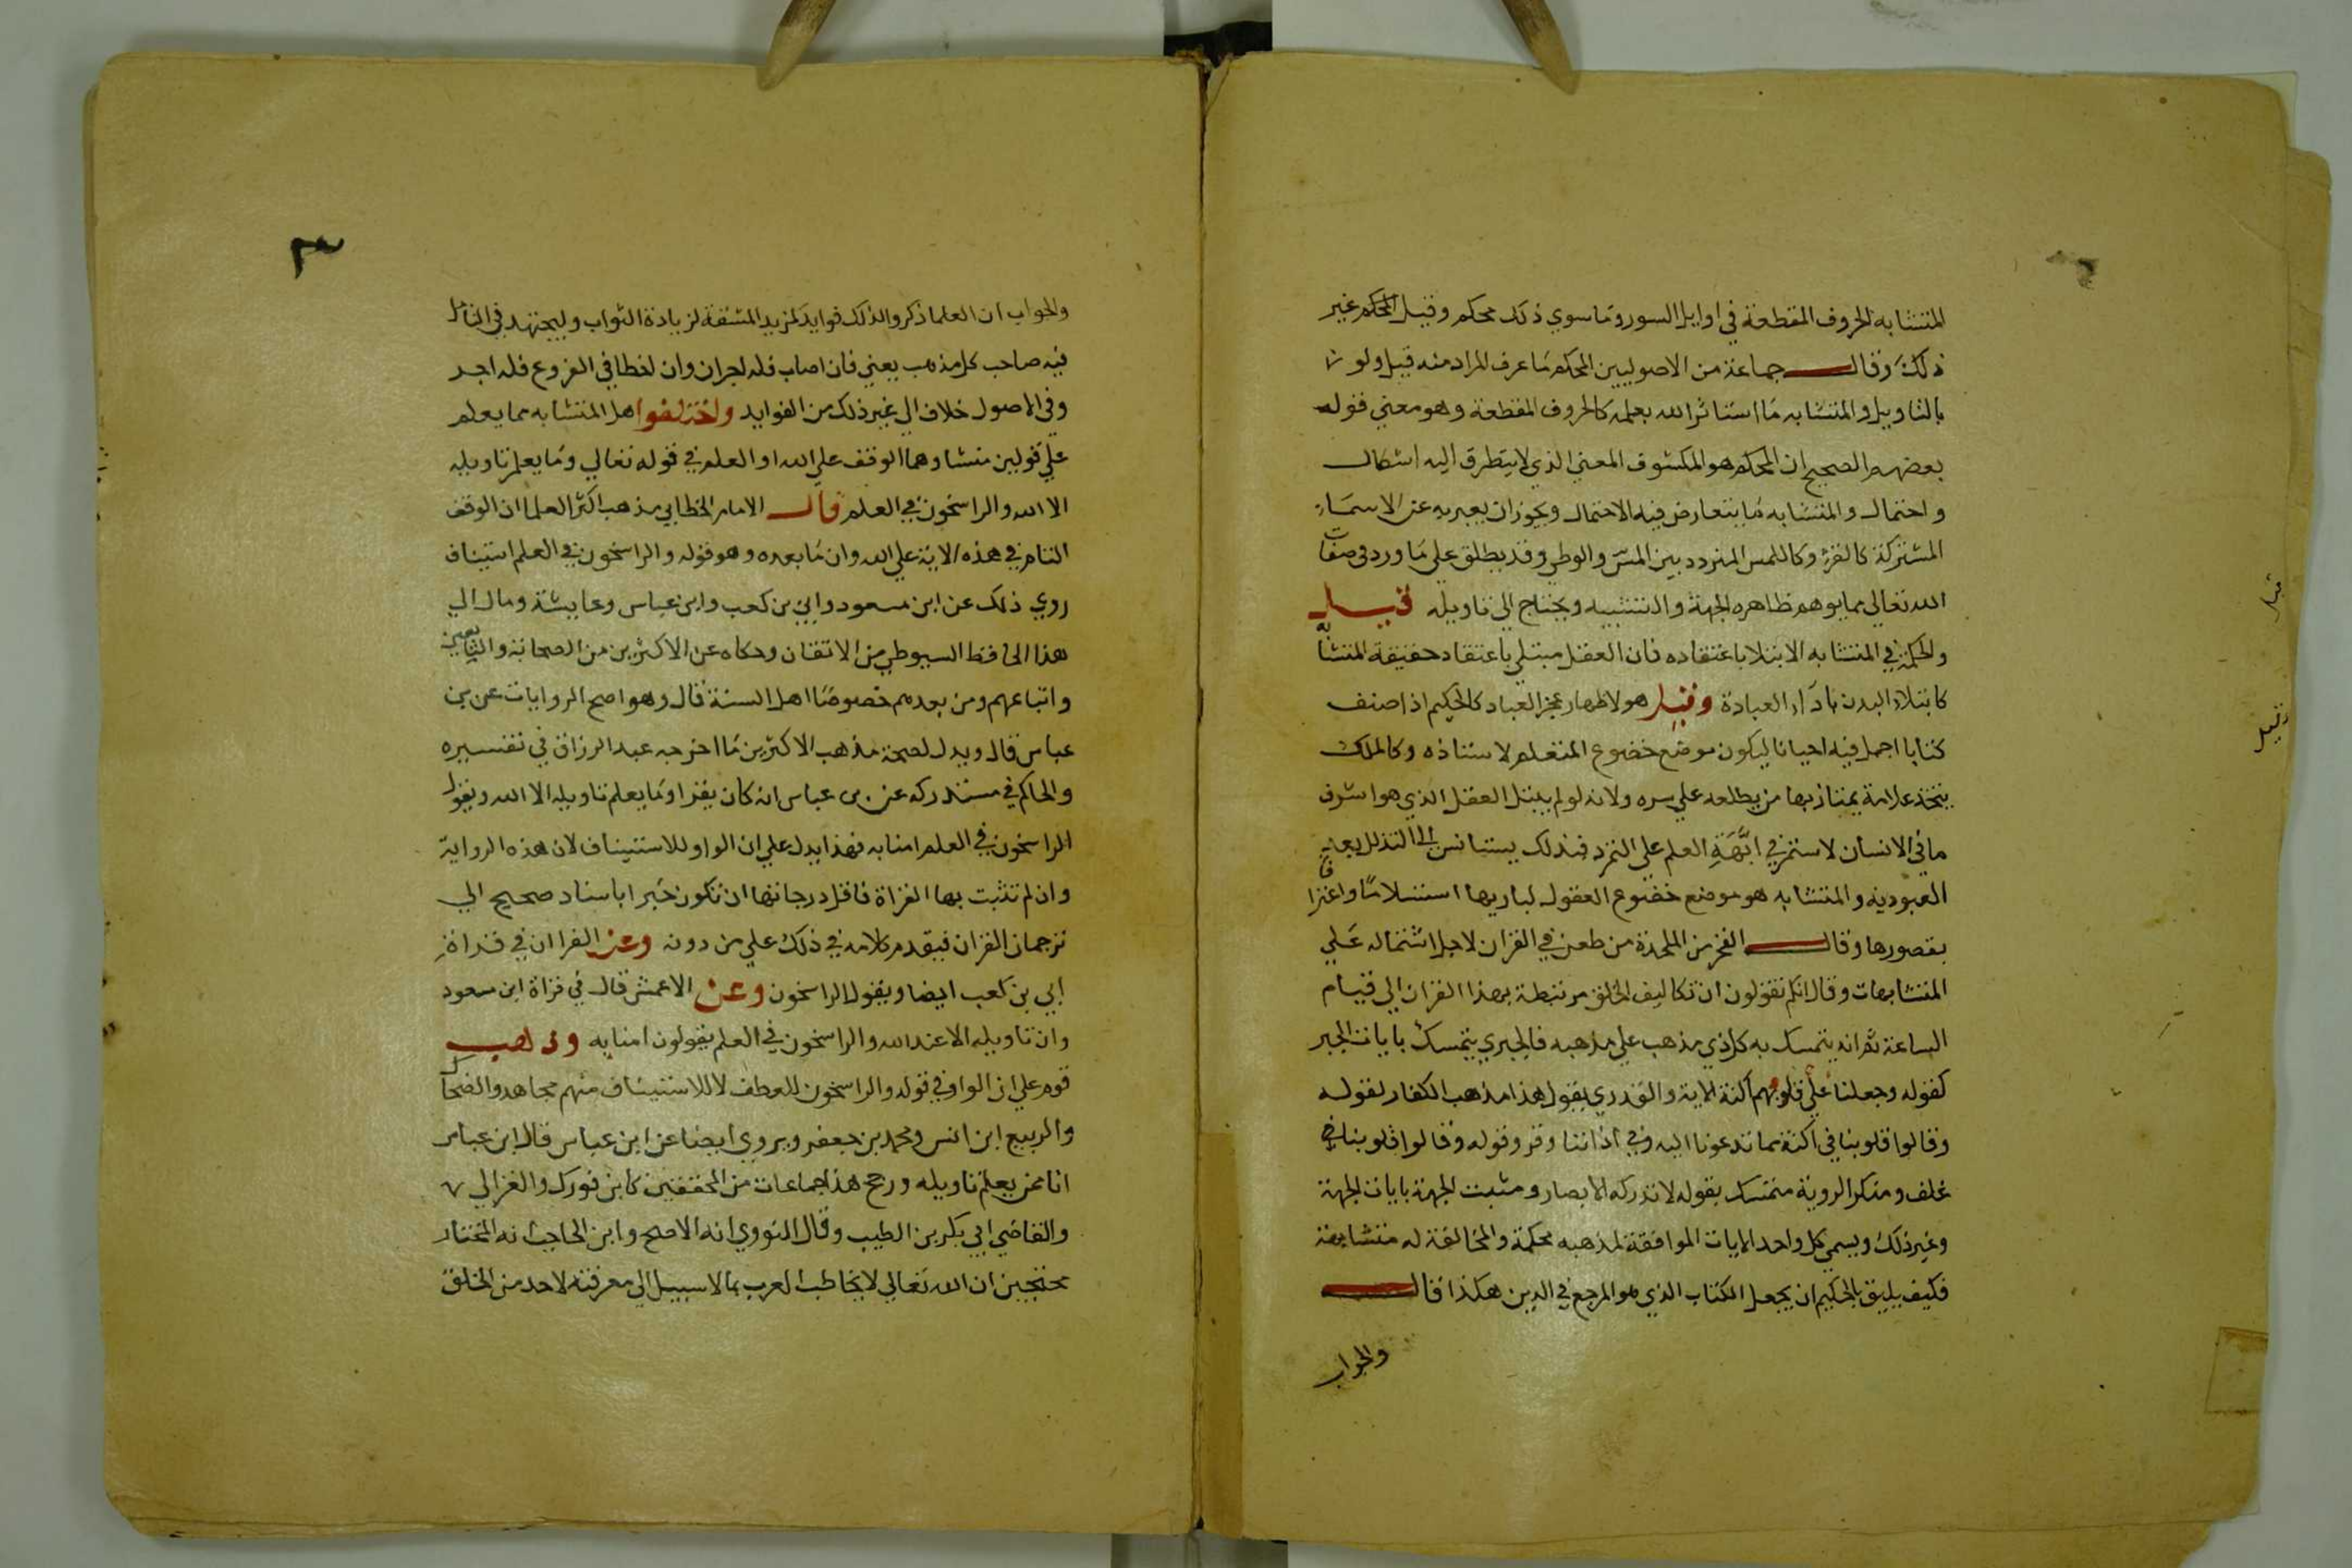 المتشابه الحروف المقطعة في اوايل السور وما سوي ذلك محكم وقيل المحكم غير
ذلك وقال جماعة من الاصوليين المحكم ما عرف المراد منه قيل ولو
بالتاويل والمتشابه ما استاثر الله بعلمه كالحروف المقطعة وهو معني قول
بعضهم الصحيح ان المحكم هو المكشوف المعني الذي لا يتطرق اليه اشكال
واحتمال والمتشابه ما يتعارض فيه الاحتمال ويجوز ان يعبر به عن الاسماء
المشتركة كالقرء وكاللمس المتردد بين المس والوطي وقد يطلق علي ما ورد في صفات
الله تعالي مما يوهم ظاهره الجهة والتشبيه ويحتاج الي تاويله قيل
والحكمة في المتشابه الابتلا باعتقاده فان العقل مبتلي باعتقاد حقيقة المتشابه
كابتلاء البدن باداء العبادة وقيل هو لاظهار عجز العباد كالحكيم اذا صنف
كتابا اجمل فيه احيانا ليكون موضع خضوع المتعلم لاستاذه وكالملك
يتخذ علامة يمتاز بها من يطلعه علي سره ولانه لو لم يبتل العقل الذي هو اشرف
ما في الانسان لاستمر في ابهة العلم علي التمرد فبذلك يستانس الي التذلل بعز
العبودية والمتشابه هو موضع خضوع العقول لباريها استسلاما واعترافا
بقصورها وقال الفخر من الملحدة من طعن في القران لاجل اشتماله علي
المتشابهات وقال انكم تقولون ان تكاليف الخلق مرتبطة بهذا القران الي قيام
الساعة ثم انه يتمسك به كل ذي مذهب علي مذهبه فالجبري يتمسك بايات الجبر
كقوله وجعلنا علي قلوبهم اكنة الاية والقدري يقول هذا مذهب الكفار لقوله
وقالوا قلوبنا في اكنة مما تدعونا اليه وفي اذاننا وقر وقوله وقالوا قلوبنا
غلف ومنكر الروية متمسك بقوله لا تدركه الابصار ومثبت الجهة بايات الجهة
وغير ذلك ويسمي كل واحد الايات الموافقة لمذهبه محكمة والمخالفة له متشابهة
فكيف يليق بالحكيم ان يجعل الكتاب الذي هو المرجع في الدين هكذا قال
والجواب
قيل
وقيل
٣
والجواب ان العلما ذكروا لذلك فوايد لمزيد المشقة لزيادة الثواب وليجتهد في التامل
فيه صاحب كل مذهب يعني فان اصاب فله اجران وان اخطا في الفروع فله اجر
وفي الاصول خلاف الي غير ذلك من الفوايد واختلفوا هل المتشابه مما يعلم
علي قولين منشاوهما الوقف علي الله او العلم في قوله تعالي وما يعلم تاويله
الا الله والراسخون في العلم قال الامام الخطابي مذهب اكثر العلما ان الوقف
التام في هذه الاية علي الله وان ما بعده وهو قوله والراسخون في العلم استيناف
روي ذلك عن ابن مسعود وابي بن كعب وابن عباس وعايشة ومال الي
هذا الحافظ السيوطي من الاتقان وحكاه عن الاكثرين من الصحابة والتابعين
واتباعهم ومن بعدهم خصوصا اهل السنة قال وهو اصح الروايات عن بن
عباس قال ويدل لصحة مذهب الاكثرين ما اخرجه عبد الرزاق في تفسيره
والحاكم في مستدركه عن بن عباس انه كان يقرا وما يعلم تاويله الا الله ويقول
الراسخون في العلم امنا به فهذا يدل علي ان الواو للاستيناف لان هذه الرواية
وان لم تثبت بها القراة فاقل درجاتها ان تكون خبرا باسناد صحيح الي
ترجمان القران فيقدم كلامه في ذلك علي من دونه وعن الفرا ان في قراة
ابي بن كعب ايضا ويقول الراسخون وعن الاعمش قال في قراة ابن مسعود
وان تاويله الا عند الله والراسخون في العلم يقولون امنا به وذهب
قوم علي ان الواو في قوله والراسخون للعطف لا للاستيناف منهم مجاهد والضحاك
والربيع ابن انس ومحمد بن جعفر ويروي ايضا عن ابن عباس قال ابن عباس
انا ممن يعلم تاويله ورجح هذا جماعات من المحققين كابن فورك والغزالي
والقاضي ابي بكر بن الطيب وقال النووي انه الاصح وابن الحاجب انه المختار
محتجين ان الله تعالي لا يخاطب العرب بما لا سبيل الي معرفته لاحد من الخلق